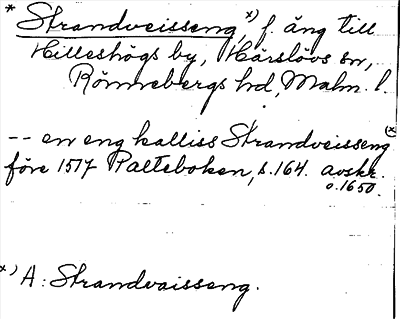 * Strandveisseng,x) f. äng till
Hilleshögs by, Härslövs sn,
Rönnebergs hd, Malm. l.
-- en eng kalliss Strandveisseng x)
före 1517 Palteboken, s. 164. avskr.
o. 1650.
x) A: Strandvaisseng.